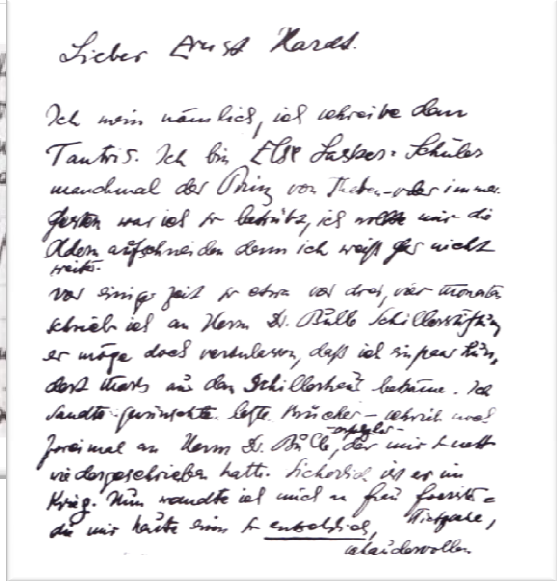 Lieber Ernst Hardt.
Ich mein nämlich, ich schreibe dem
Tantris. Ich bin Else Lasker-Schüler
manchmal der Prinz von Theben - oder immer.
Gestern war ich so betrübt, ich wollte mir die
Adern aufschneiden denn ich weiß gar nicht
weiter.
Vor einige Zeit so etwa vor drei, vier Monaten
schrieb ich an Herrn Dr. Bulle Schillerstiftung
er möge doch veranlassen, daß ich ein paar hun,
dert Mark aus dem bekäme. Ich
sandte gewünschte Bücher - schrieb noch
zweimal an Herrn Dr. Bulle, der mir so nett
wiedergeschrieben hatte. Sicherlich ist er im
Krieg. Nun wandte ich mich an Frau Foerster =
die mir heute einen so entsetzlich, Nietzsche,
schaudervollen